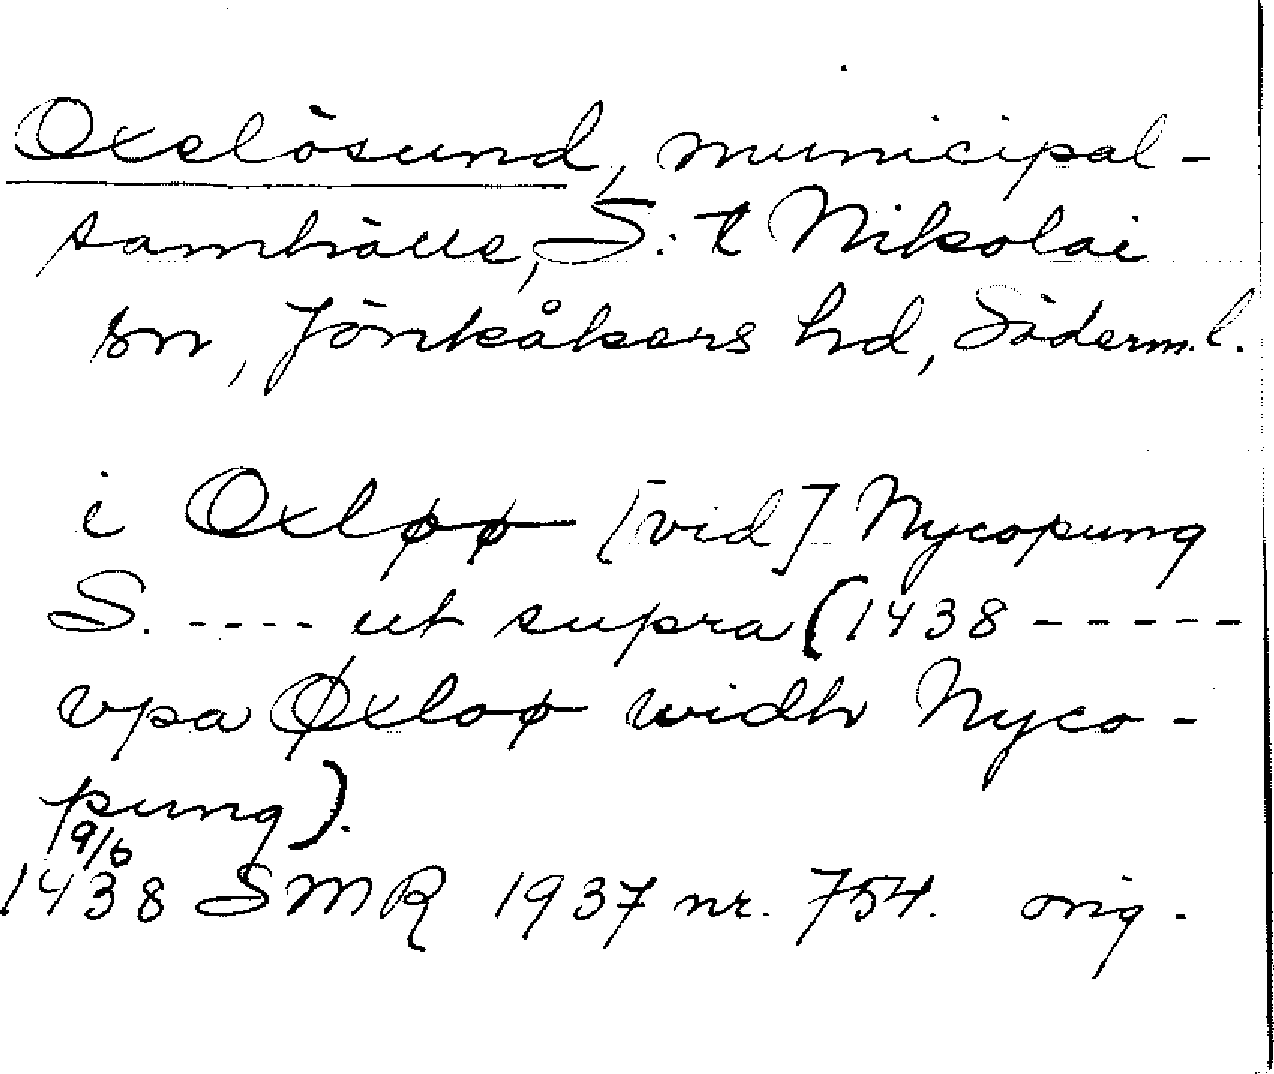 Oxelösund, municipal-
samhälle, S:t Nikolai
sn, Jönåkers hd, Söderm. l.
i Oxløø [vid] Nycopung
S. ---- ut supra (1438 -----
vpa Øxloø widh Nyco-
pung).
9/6
1438 SMR 1937 nr. 754. orig.